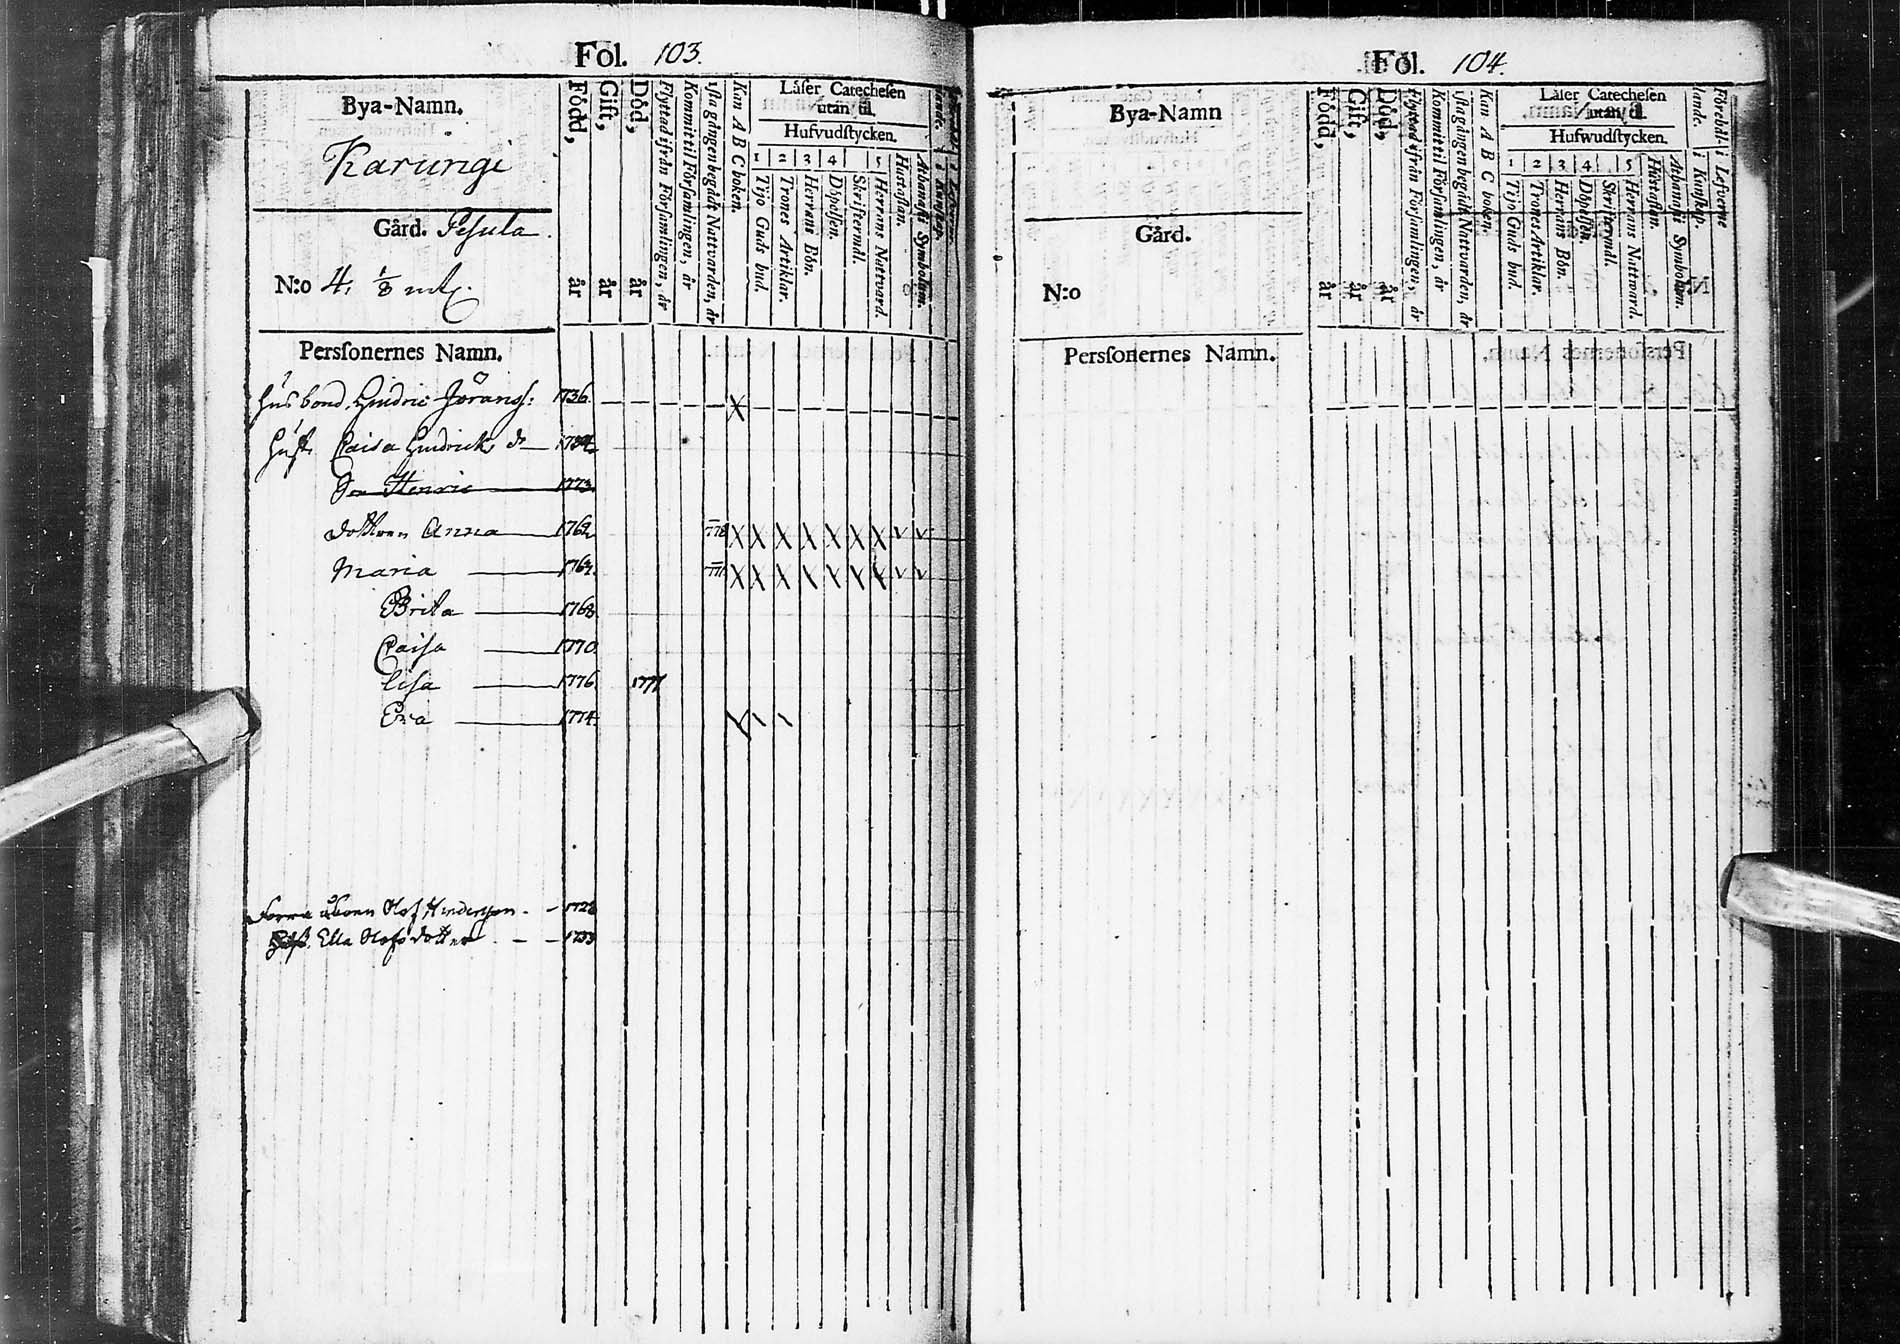 Fol. 103.
Bya-Namn.
Karungi
Gård. Pesula
N:o 4. 1/8 mtl.
Född, år
Gift, år
Död, år
Flyttad ifrån Församlingen, år
Kommit til Församlingen, år
ista gången begådt Nattvarden, år
Kan A B C boken.
Låser Catechesen
utan til.
Hufvudstycken.
1 2 3 4 5
Tijo Guds bud.
Trones Artiklar.
Herrans Bön.
Döpelsen.
Skriftermål.
Herrans Nattvard.
Hustaflan.
Athanasii Symbolum.
Perssonernes Namn.
Husbond. Hindric Jöranss: 1736.
Hust. Caisa Hindricks dr
Son Henric 1773.
Dottren Anna 1762 778 X X X X X X X
Maria X X X X X X X
Brita 1768.
Caisa 1770
Lisa 1776. 1777
Eva 1774.
Förra åboen Olof Hindersson 1728
Hust. Ella Olofsdotter 1733
Fol. 104.
Bya-Namn
Gård.
N:o
Född, år
Gift, år
Död, år
Flyttad ifrån Församlingen, år
Kommit til Församlingen, år
ista gången begådt Nattvarden, år
Kan A B C boken.
Låser Catechesen
utan til.
Hufwudstycken.
1 2 3 4 5
Tijo Guds bud.
Trones Artiklar.
Herrans Bön.
Döpelsen.
Skriftermål.
Herrans Nattvard
Hustaflan.
Athanasii Symbolum.
i Kunskap.
i Lefverne
Perssonernes Namn.